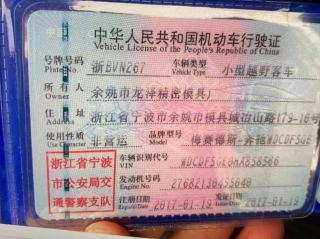 中华人民共和国机动车行驶证
Vehicle License of the People's Republic of China
号牌号码 浙BVN267 车辆类型 小型越野客车
Plate No. Vehicle Type
所有人 余姚市龙泽精密模具厂
Owner
住址 浙江省宁波市余姚市模具城冶山路179-16号
Address
使用性质 非营运 品牌型号
Use Character Model
浙江省宁波
市公安局交
通警察支队
车辆识别代号
VIN
发动机号码
Engine No.
注册日期 2017-01-19 发证日期 2017-01-19
Register Date Issue Date